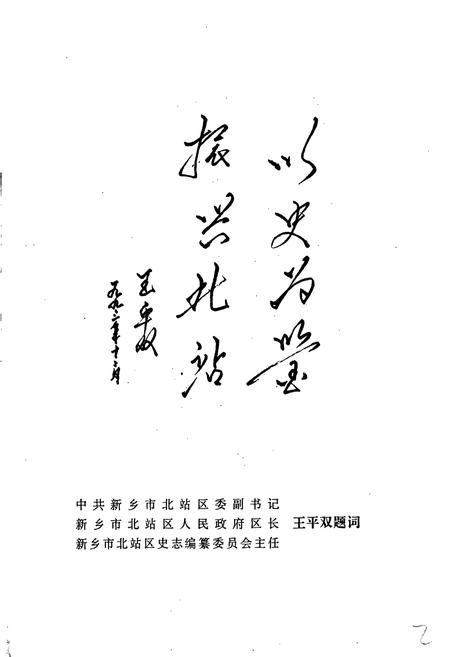 以史为鉴
振兴北站
王平双
一九九二年十二月
中共新乡市北站区委副书记
新乡市北站区人民政府区长 王平双题词
新乡市北站区史志编纂委员会主任
2